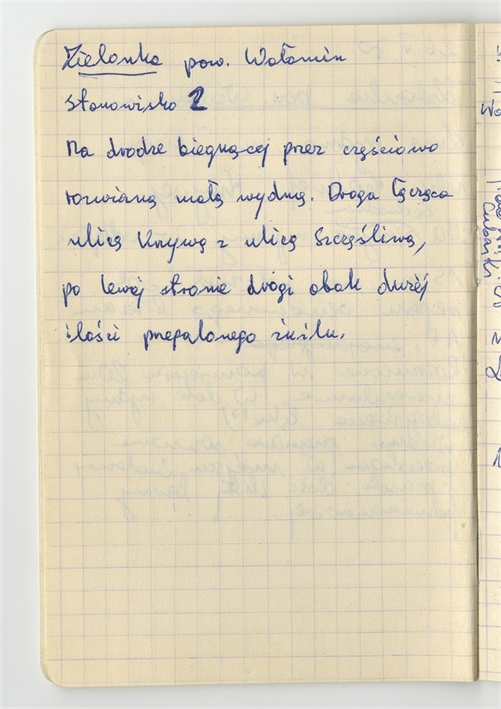 Zielonka pow. Wołomin
Stanowisko 2
Na drodze biegnącej przez częściowo
rozwianą małą wydmę. Droga łącząca
ulicę Krzywą z ulicą Szczęśliwą,
po lewej stronie drogi obok dużej
ilości przepalonego żużlu.